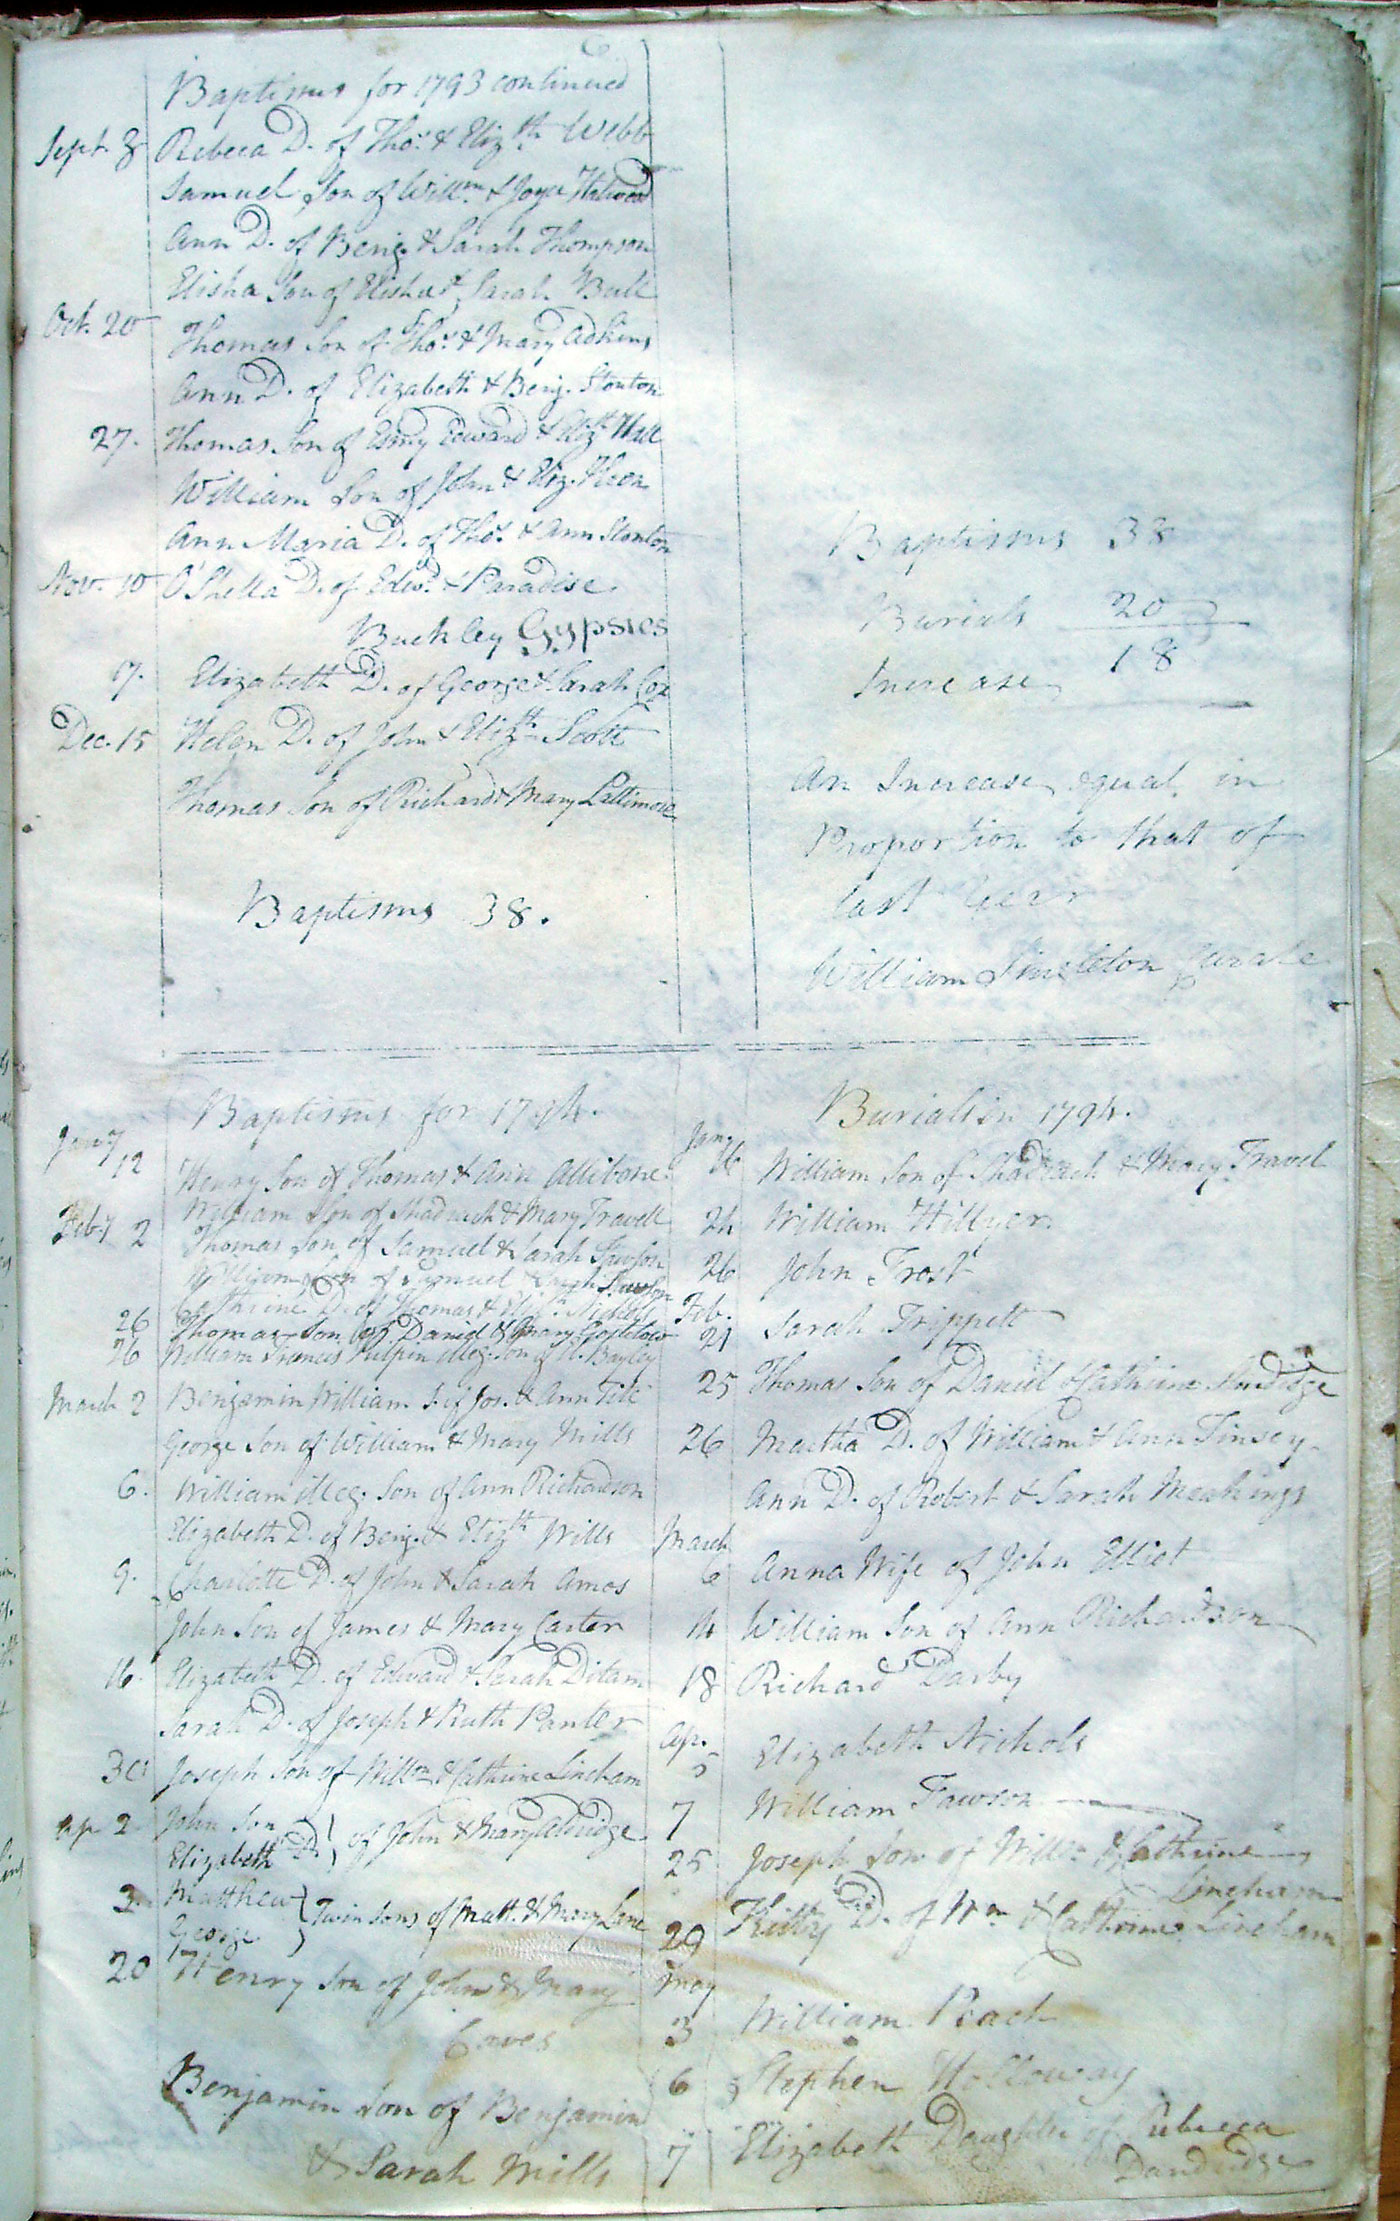 Baptisms for 1793 continued
Sept. 8 Rebeca D. of Thos. & Elizth Webb
Samuel Son of Willm. & Joyce
Ann D. of Benj. & Sarah Thompson
Elisha Son of Elisha & Sarah Bull
Oct. 20 Thomas Son of Thos. & Mary Adkins
Ann D. of Elizabeth & Benj. Stanton
27. Thomas Son of Edward & Elizth Hall
William Son of John & Eliz.
Ann Maria D. of Thos. & Ann Stanton
Nov. 10 O'Shella D. of Edwd. & Paradise
Buckley Gypsies
17. Elizabeth D. of George & Sarah Cox
Dec. 15 Helen D. of John & Elizth Scott
Thomas Son of Richard & Mary Lattimore
Baptisms 38.
Baptisms 38
Burials 20
Increase 18
An Increase equal in
Proportion to that of
last Year
William Singleton Curate
Baptisms for 1794.
Jany 12 Henry Son of Thomas & Ann Allibone
William Son of Shadrach & Mary Travell
Feby 2 Thomas Son of Samuel & Sarah
William Son of Samuel & Sarah
Catherine D. of Thomas & Elizth
26 Thomas Son of David & Mary
26 William Francis illeg. Son of Bayley
March 2 Benjamin William S. of Jos. & Ann
George Son of William & Mary Mills
6. William illeg. Son of Ann Richardson
Elizabeth D. of Benj. & Elizth Wills
9. Charlotte D. of John & Sarah Amos
John Son of James & Mary Carter
16. Elizabeth D. of Edward & Sarah Ditam
Sarah D. of Joseph & Ruth Panter
30 Joseph Son of Willm & Cathrine Lineham
Ap 2 John Son
Elizabeth D. } of John & Mary Aldridge
3. Matthew
George } Twin Sons of Matt. & Mary Lane
20 Henry Son of John & Mary
Eaves
Benjamin Son of Benjamin
& Sarah Mills
Burials in 1794.
Jany
16 William Son of Shadrach & Mary Travel
24 William Hillyer
26 John Frost
Feb.
21 Sarah Trippett
25 Thomas Son of Daniel & Cathrine
26 Martha D. of William & Ann Tinsey
Ann D. of Robert & Sarah Meakings
March
6 Anna Wife of John Elliot
14 William Son of Ann Richardson
18 Richard Darby
Ap.
5 Elizabeth Nichols
7 William Fawson
25 Joseph Son of Willm & Cathrine
Lineham
29 Kitty D. of Wm & Cathrine Lineham
May
3 William Peach
6 Stephen Holloway
7 Elizabeth Daughter of Rebecca
Dandridge